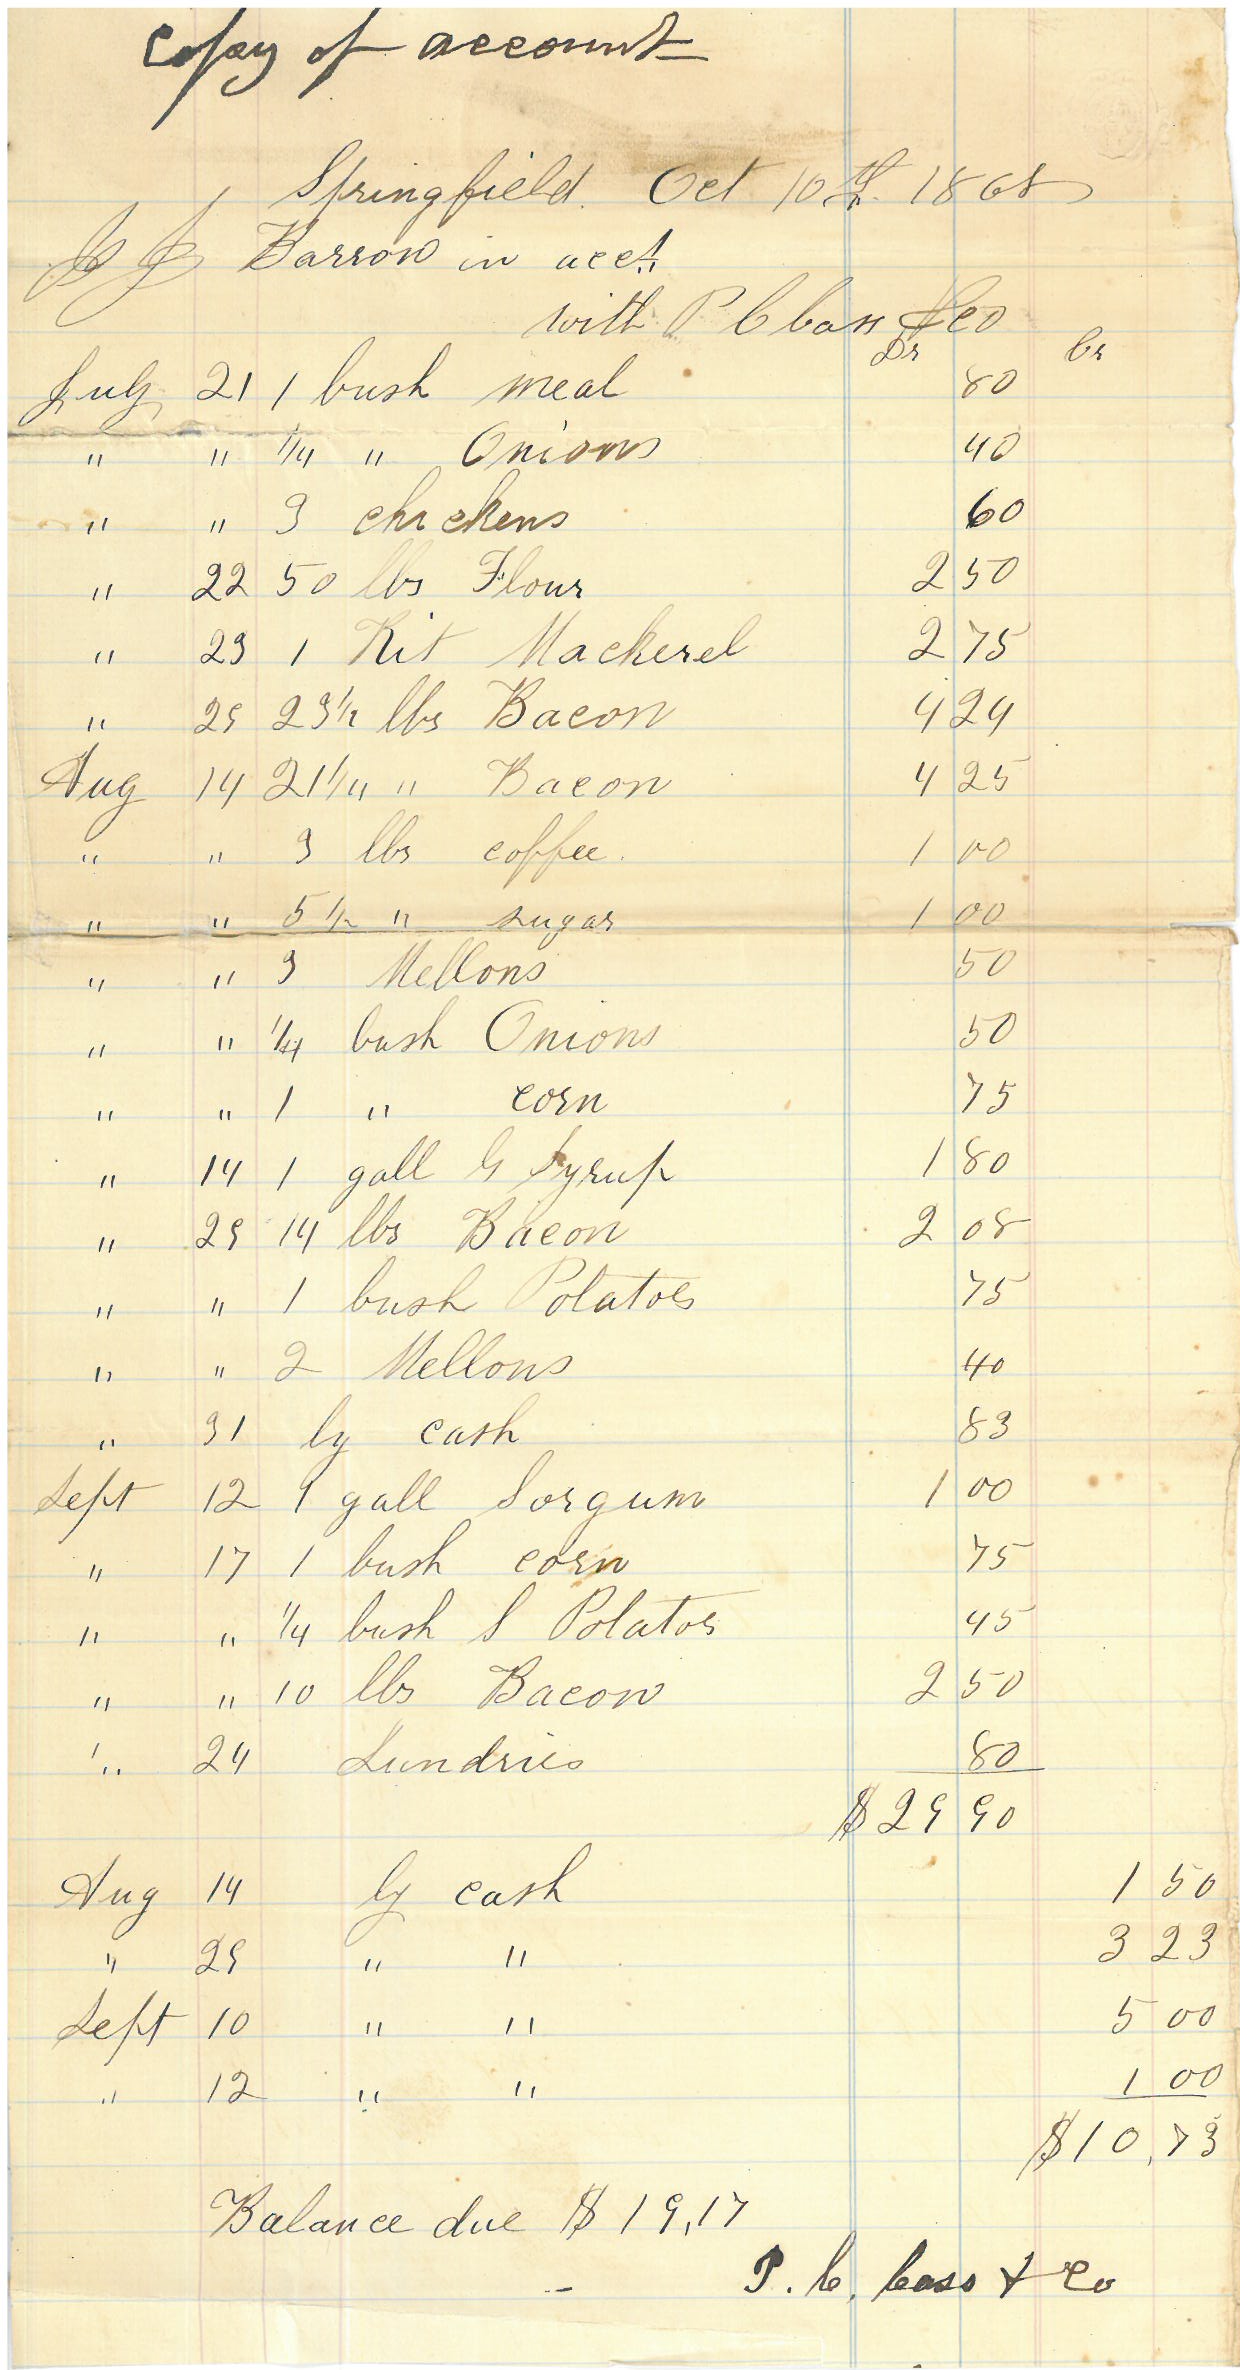 Copy of account
Springfield. Oct 10th. 1868
J J Barrow in acct.
with P C Cass & Co
Dr Cr
July 21 1 bush meal 80
" " 1/4 " Onions 40
" " 3 chickens 60
" 22 50 lbs Flour 2 50
" 23 1 Kit Mackerel 2 75
" 29 23 1/2 lbs Bacon 4 24
Aug 14 21 1/4 " Bacon 4 25
" " 3 lbs coffee. 1 00
" " 5 1/2 " sugar 1 00
" " 3 Mellons 50
" " 1/4 bush Onions 50
" " 1 " corn 75
" 14 1 gall G Syrup 1 80
" 29 14 lbs Bacon 2 08
" " 1 bush Potatoes 75
" " 2 Mellons 40
" 31 by cash 83
Sept 12 1 gall Sorgum 1 00
" 17 1 bush corn 75
" " 1/4 bush S Potatos 45
" " 10 lbs Bacon 2 50
" 24 Sundries 80
$29 90
Aug 14 by cash 1 50
" 29 " " 3 23
Sept 10 " " 5 00
" 12 " " 1 00
$10,73
Balance due $19,17
P. C. Cass & Co